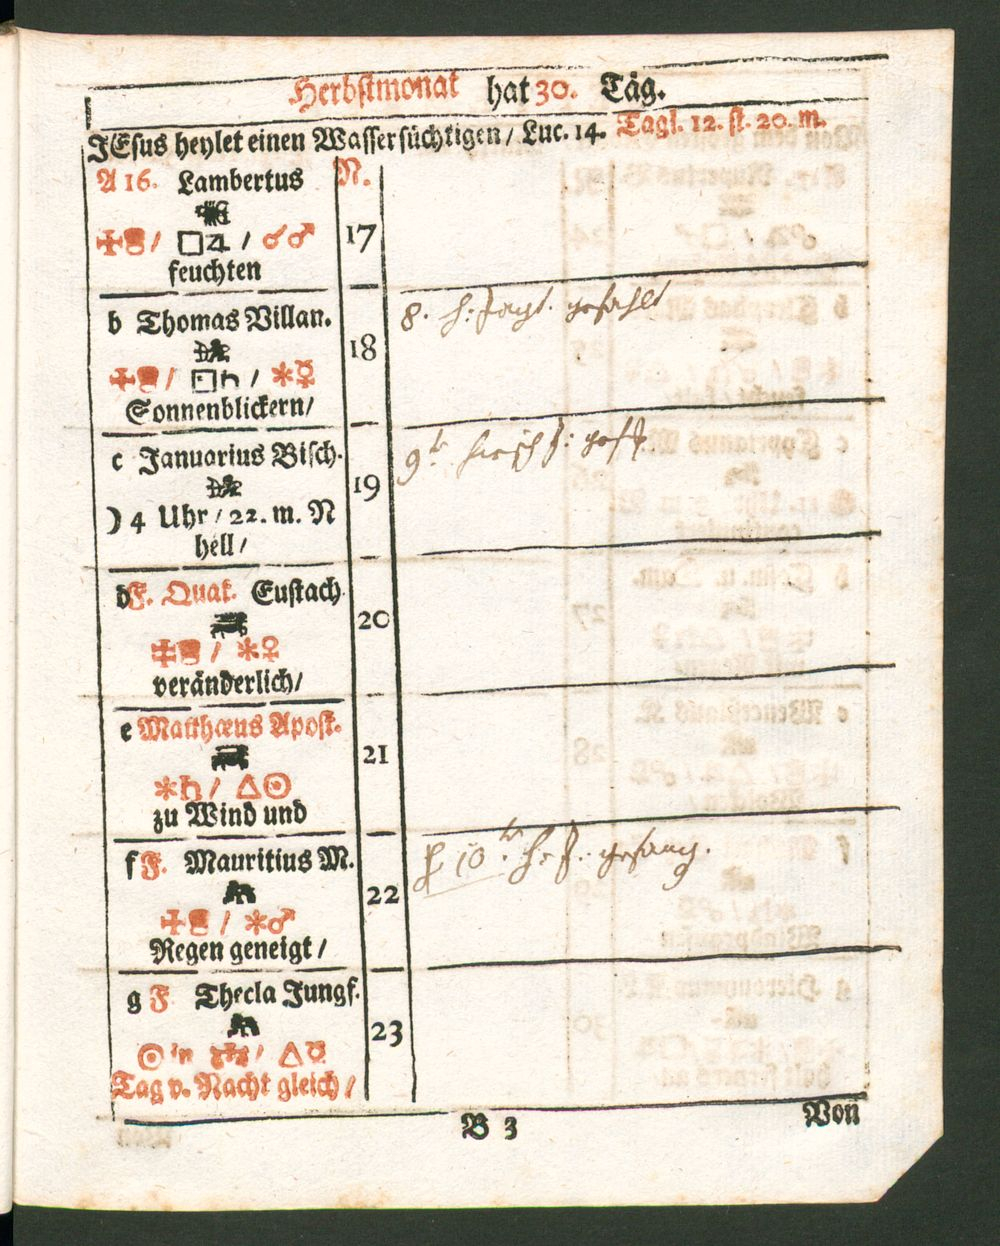 Herbstmonat hat 30. Täg.
JEsus heylet einen Wassersüchtigen / Luc. 14. Tagl. 12. st. 20. m.
A 16. Lambertus N.
☩ / □♃ / ☌♂ 17
feuchten
b Thomas Villan.
8. h: Jagt. gefahlt
18
☩ / □♄ / ✶☿
Sonnenblickern /
c Januarius Bisch.
9te
19
☽ 4 Uhr / 22. m. N
hell /
d F. Quat. Eustach
20
☩ / ✶♀
veränderlich /
e Matthæus Apost.
21
✶♄ / △☉
zu Wind und
f F. Mauritius M.
10te h: J: gefang.
22
☩ / ✶♂
Regen geneigt /
g F Thecla Jungf.
23
☉ in ♎ / △☿
Tag v. Nacht gleich /
B 3 Von